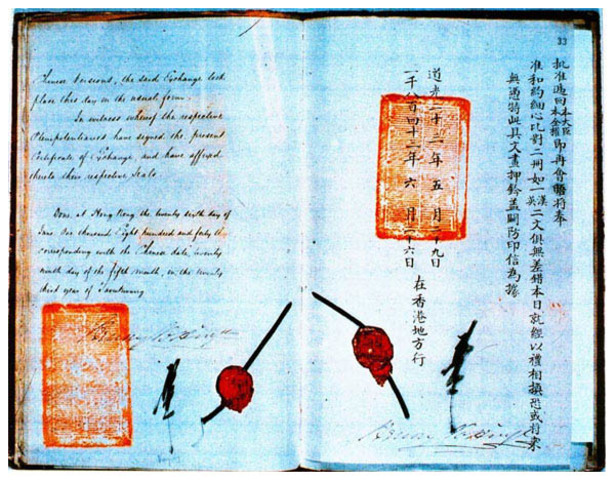 Chinese Versions, the said Exchange took
place this day in the usual form.
In witness whereof the respective
Plenipotentiaries have signed the present
Certificate of Exchange, and have affixed
thereto their respective Seals.
Done, at Hong Kong the twenty sixth day of
June, One thousand Eight hundred and forty th
corresponding with the Chinese date, twenty
ninth day of the fifth month, in the twenty
third year of Taoukwang
33
批准過回本大臣即再會晤將奉
准和約細心比對二冊如一漢英二文俱無差錯本日就經以禮相換恐或將來
無憑特此具文畫押鈐蓋關防印信為據
道光二十三年五月二十九日
一千八百四十三年六月二十六日
在香港地方行